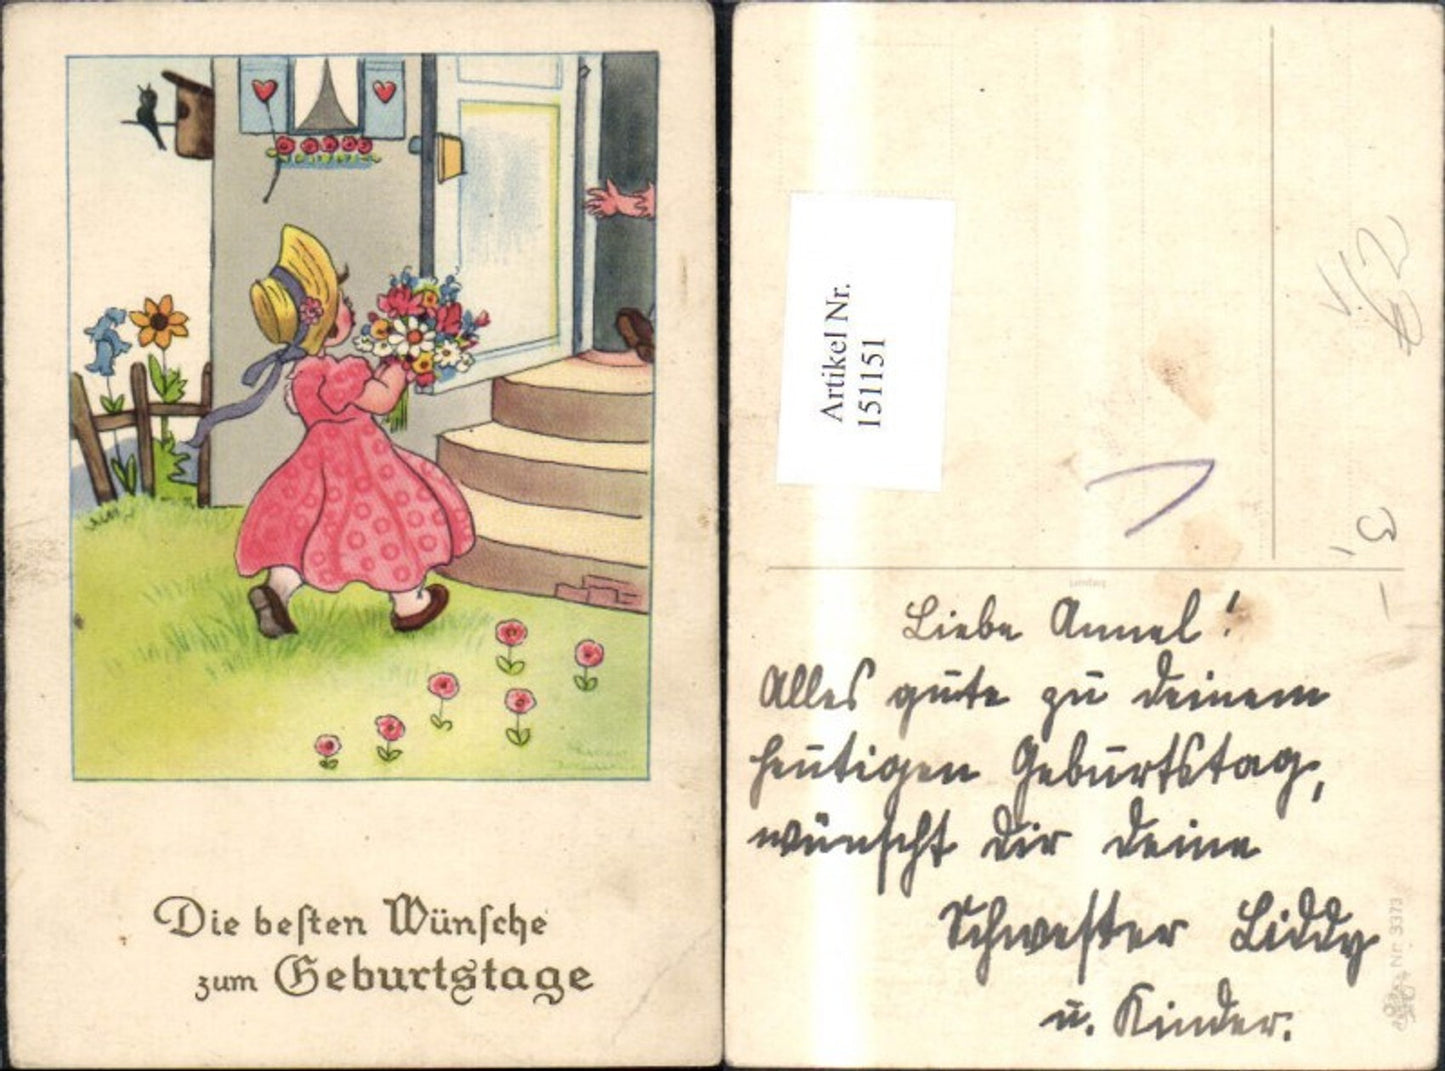 Die besten Wünsche
zum Geburtstage
Artikel Nr.
151151
3,-
Liebe Annel!
Alles gute zu deinem
heutigen Geburtstag,
wünscht dir deine
Schwester Liddy
u. Kinder.
Nr. 3373